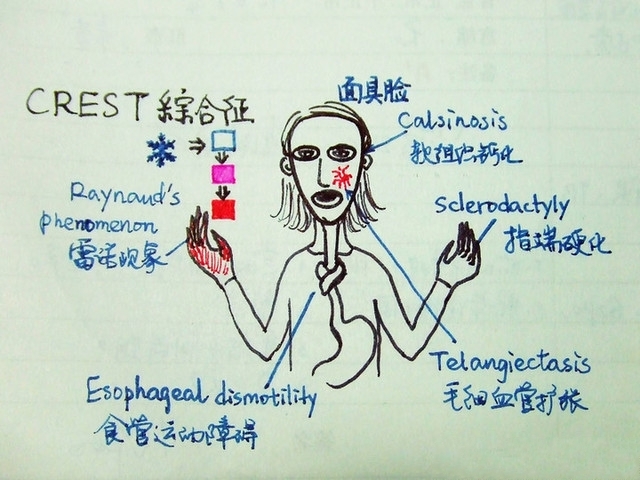 CREST 綜合征
面具脸
Calsinosis
软组织钙化
Raynaud's
phenomenon
雷诺现象
sclerodactyly
指端硬化
Telangiectasis
毛细血管扩张
Esophageal dismotility
食管运动障碍